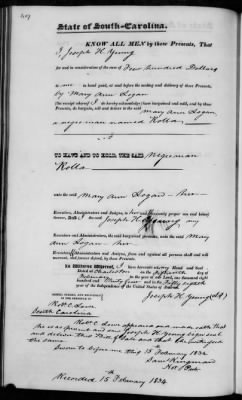 State of South-Carolina.
KNOW ALL MEN by these Presents, That
I Joseph H. Young
for and in consideration of the sum of Four hundred Dollars
to me in hand paid, at or before the sealing and delivery of these Presents,
by Mary Ann Logan
the receipt whereof I do hereby acknowledge) have bargained and sold, and by these
Presents, do bargain, sell and deliver to the said Mary Ann Logan
a negro man named Rolla
TO HAVE AND TO HOLD, THE SAID Negro man
Rolla
unto the said Mary Ann Logan her
Executors, Administrators and Assigns, to her and their only proper use and behoof,
forever. And I the said Joseph H. Young my
Executors and Administrators, the said bargained premises, unto the said Mary
Ann Logan her
Executors, Administrators and Assigns, from and against all persons shall and will
warrant, and forever defend, by these Presents.
In Witness Whereof, I have hereunto set my Hand and Seal
Dated at Charleston on the fifteenth day of
February in the year of our Lord, one thousand eight
hundred and thirty four and in the fifty eighth
year of the Independence of the United States of America.
Joseph H. Young (LS)
SIGNED, SEALED, AND DELIVERED
IN THE PRESENCE OF
South Carolina
appeared and made oath that
he was present and saw Joseph H. Young sign seal
and deliver this Bill of Sale and that he witnessed
the same
Sworn to before me this 15 February 1834
Recorded 15 February 1834